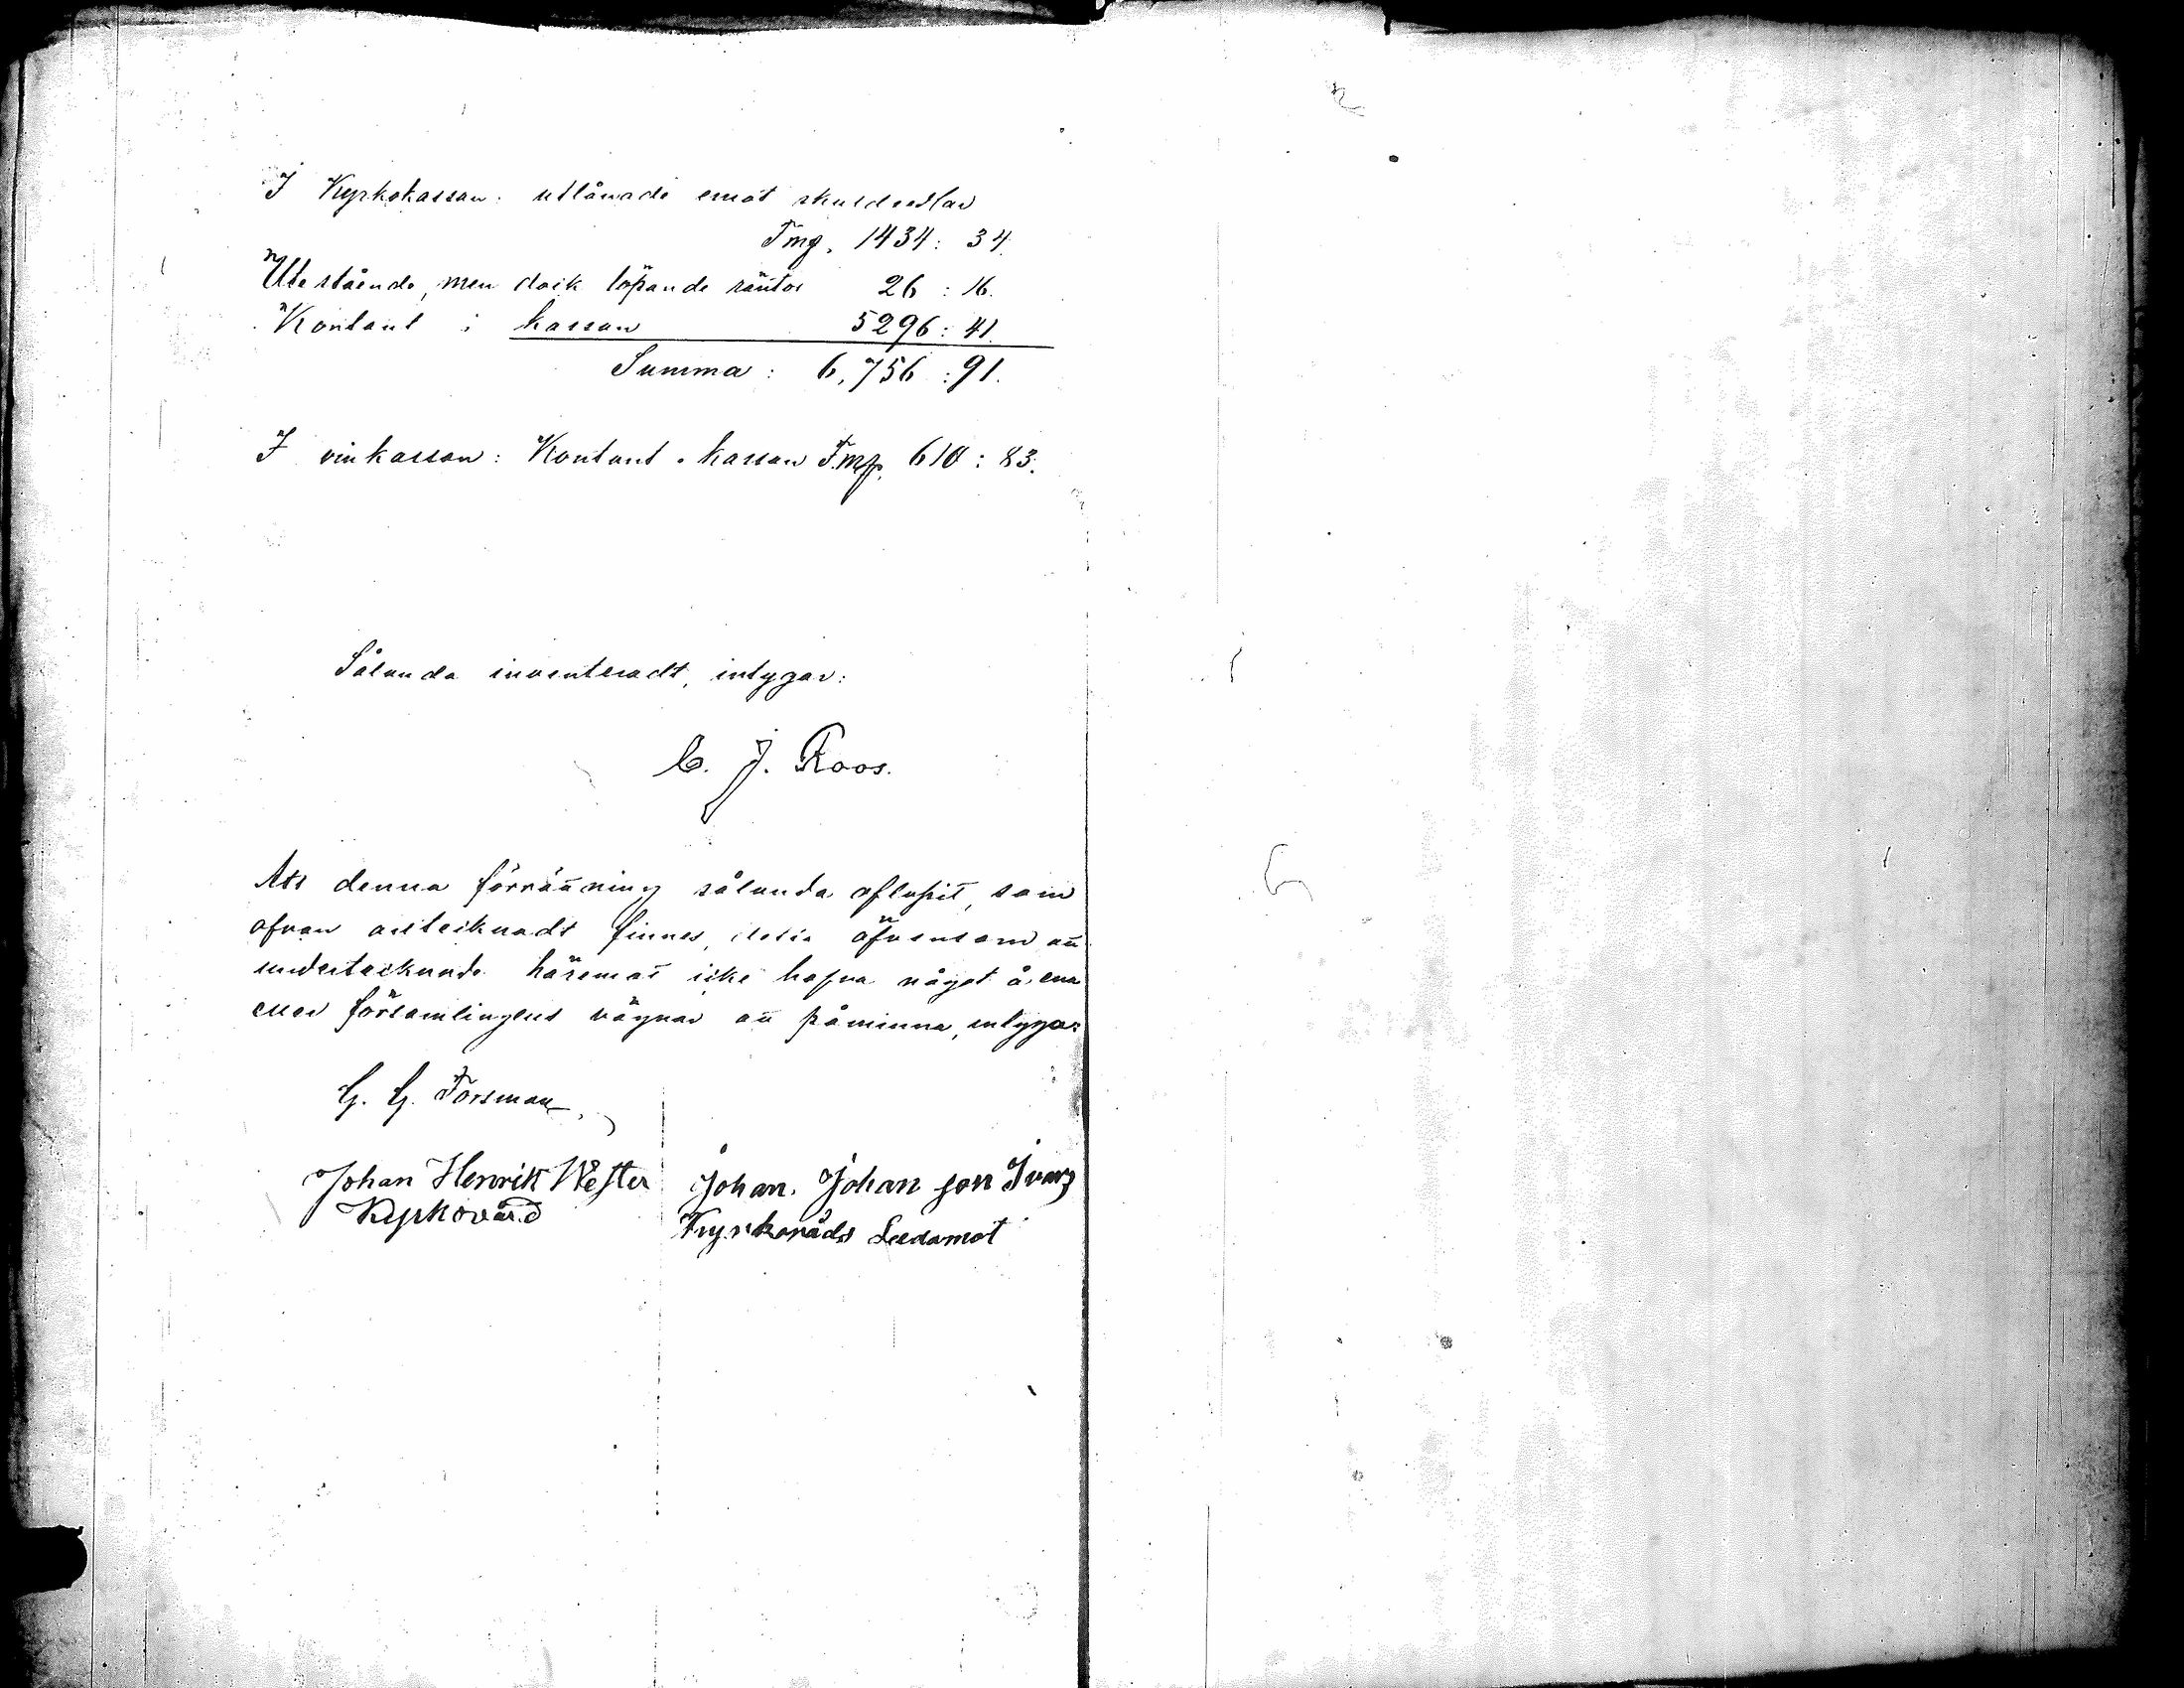 I Kyrkokassan: utlånade emot skuldsedlar
Fmg. 1434: 34.
Utestående, men dock löpande räntor 26 : 16.
Kontant i kassan 5296: 41.
Summa: 6,756 : 91.
I vinkassan: Kontant i kassan Fmg. 610 : 83.
Sålunda inventeradt, intygar:
C. J. Roos.
Att denna förrättning sålunda aflupit, som
ofvan antecknadt finnes, äfvensom att
undertecknade häremot icke hafva något å ena
eller församlingens vägnar att påminna, intyga:
G. G. Forsman
Johan Henrik Wester
Kyrkovärd
Johan Johan son Ivarz
Kyrkoråds Ledamot